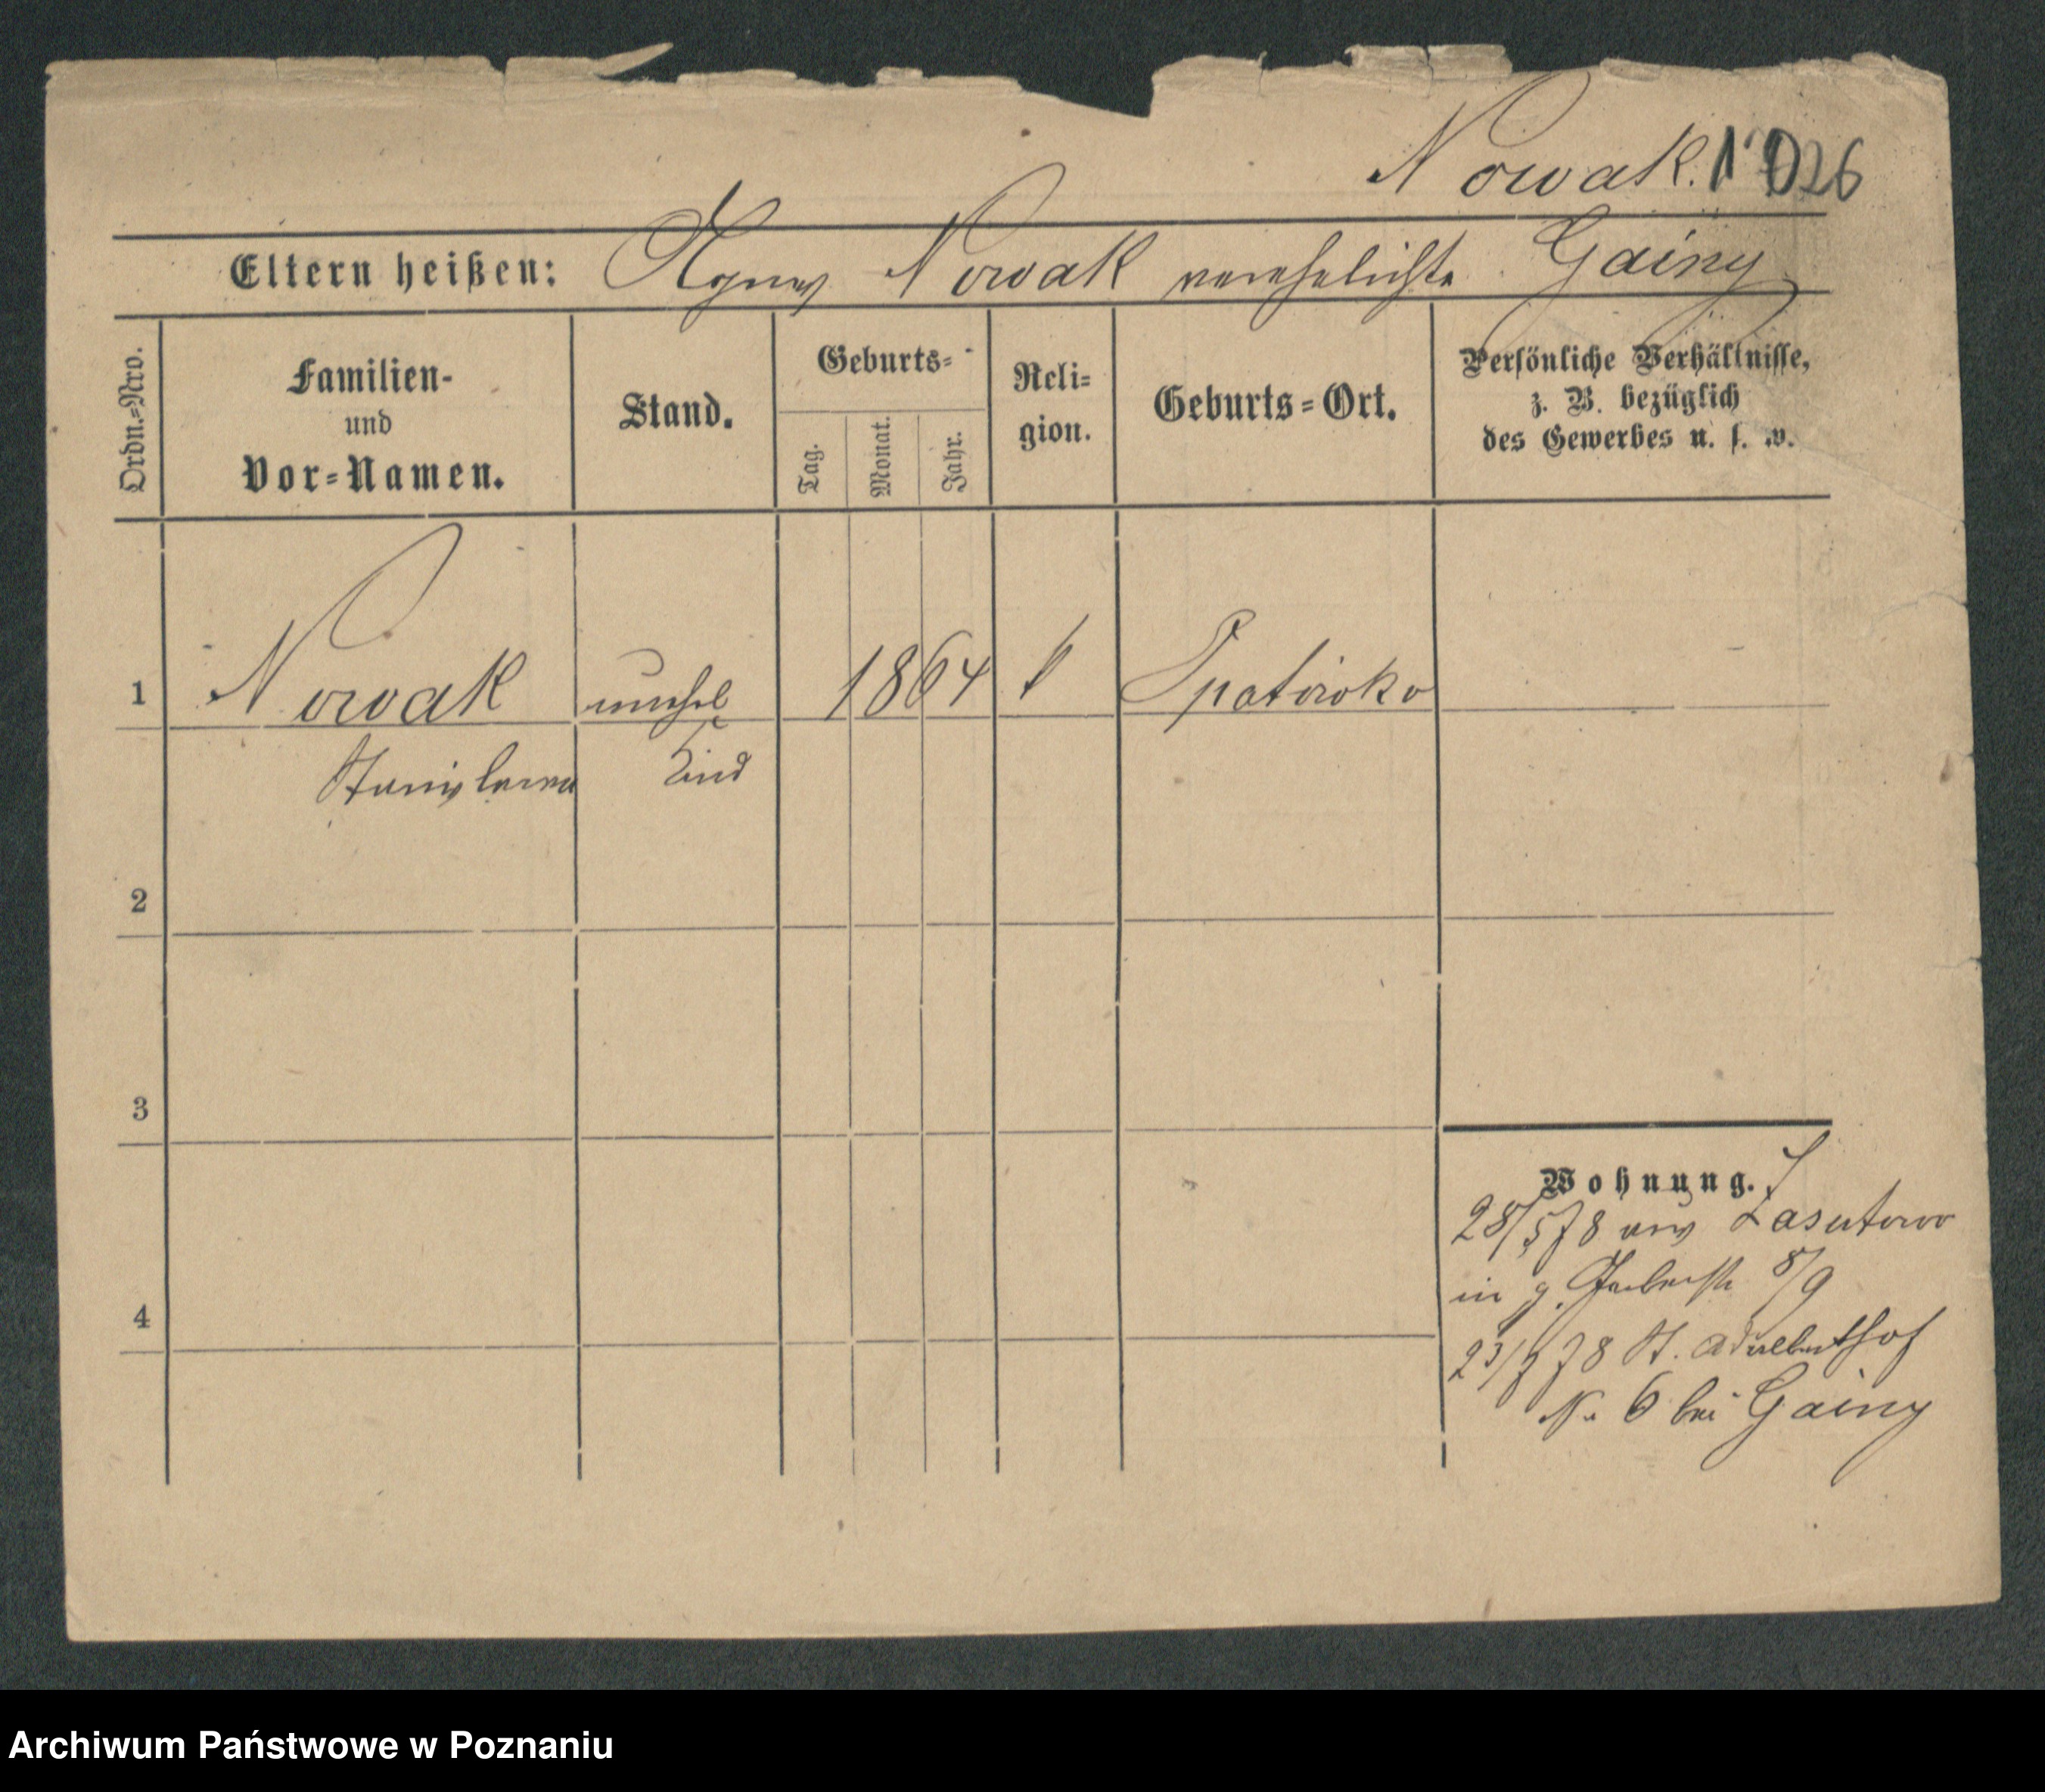 Nowak. 1026
Eltern heißen: Agnes Nowak verehelichte Gainy
Ordn.=Nro.
Familien-
und
Vor=Namen.
Stand.
Geburts=
Tag.
Monat.
Jahr.
Reli=
gion.
Geburts=Ort.
Persönliche Verhältnisse,
z. B. bezüglich
des Gewerbes u. s. w.
1 Nowak unehel 1864 k
Stanislawa Kind
2
3
4
Wohnung.
28/5 78 aus Lasutowo
in g. Gerberstr 8/9
23/7 78 St. Adalberthof
No 6 bei Gainy
Archiwum Państwowe w Poznaniu